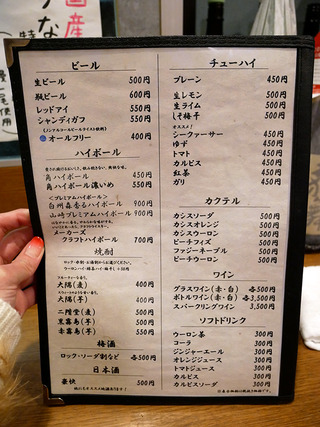 国産
うな
使用
ビール
生ビール 500円
瓶ビール 600円
レッドアイ 550円
シャンディガフ 550円
(ノンアルコールビールテイスト飲料)
オールフリー 400円
ハイボール
角ハイボール 450円
角ハイボール濃いめ 550円
<プレミアムハイボール>
白州森香るハイボール 900円
山崎プレミアムハイボール 900円
メーカーズ
クラフトハイボール 700円
焼酎
ロック・水割・お湯割からお選びください。
大隅(麦) 400円
大隅(芋) 400円
二階堂(麦) 500円
黒霧島(芋) 500円
赤霧島(芋) 550円
梅酒
ロック・ソーダ割など 各500円
日本酒
豪快 500円
チューハイ
プレーン 450円
生レモン 500円
生ライム 500円
しそ梅干 500円
オススメ!
シークァーサー 450円
ゆず 450円
トマト 450円
カルピス 450円
紅茶 450円
ガリ 450円
カクテル
カシスソーダ 500円
カシスオレンジ 500円
カシスウーロン 500円
ピーチフィズ 500円
ファジーネーブル 500円
ピーチウーロン 500円
ワイン
グラスワイン(赤・白) 各500円
ボトルワイン(赤・白) 各3,500円
スパークリングワイン 3,500円
ソフトドリンク
ウーロン茶 300円
コーラ 300円
ジンジャーエール 300円
オレンジジュース 300円
トマトジュース 300円
カルピス 300円
カルピスソーダ 300円